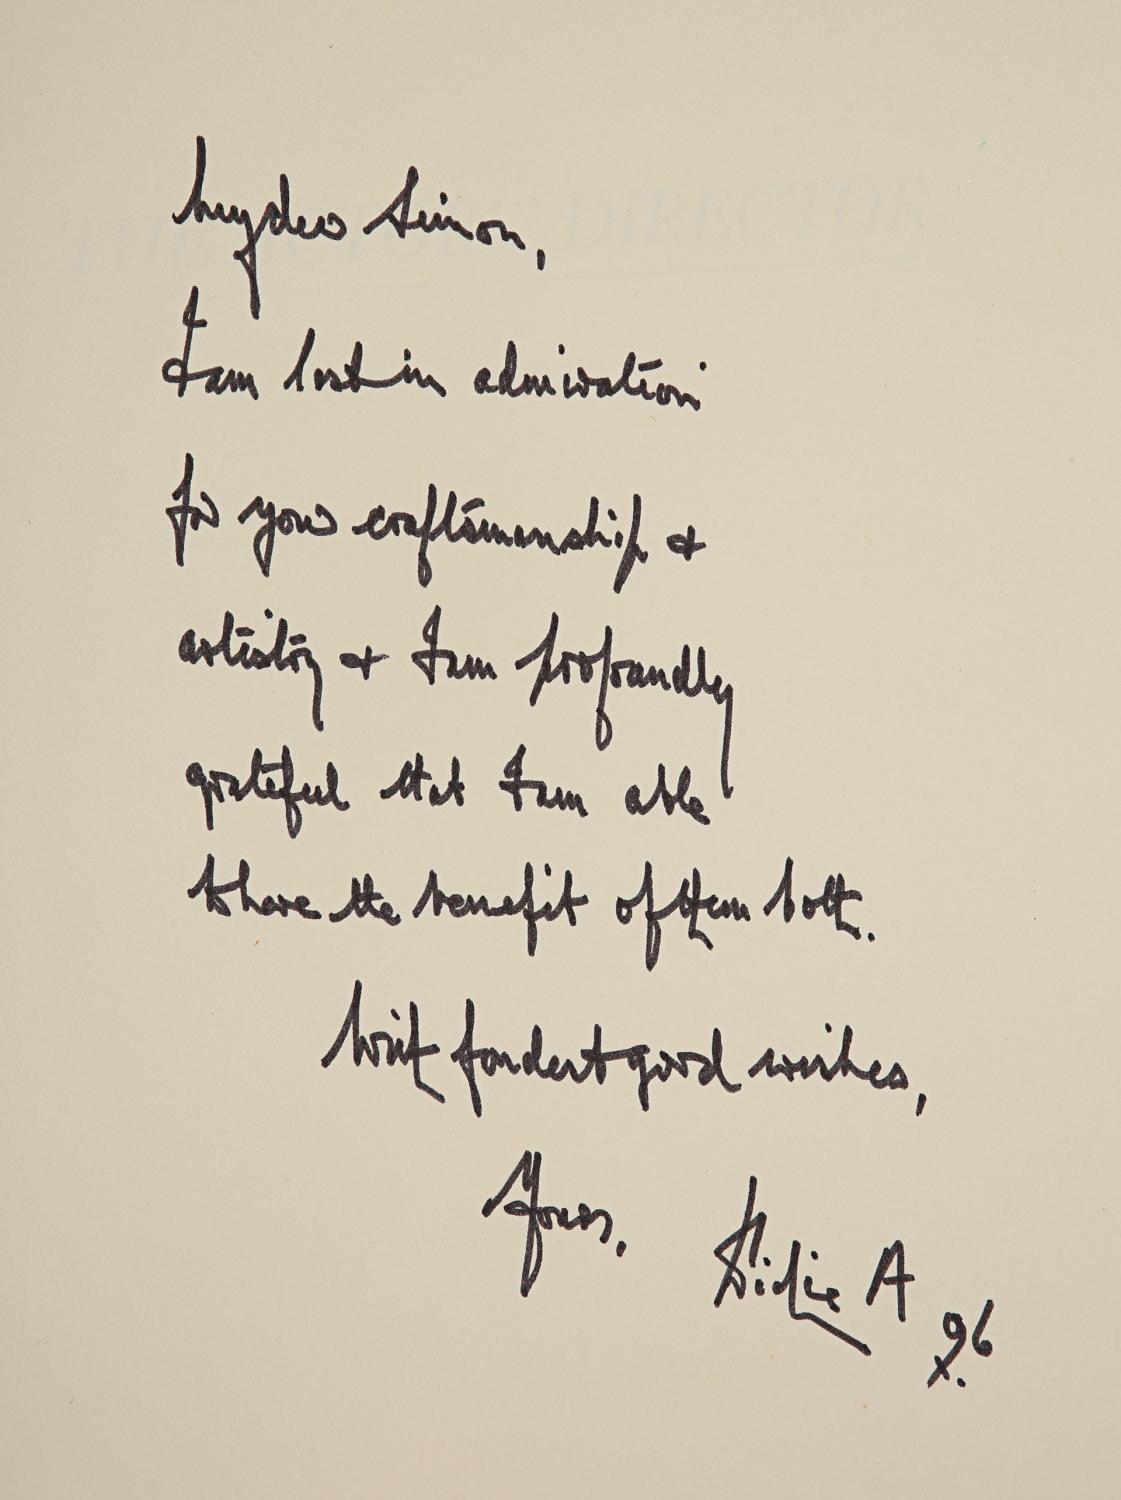 My dear Simon,
I am lost in admiration
for your craftsmanship &
artistry & I am profoundly
grateful that I am able
to have the benefit of them both.
With fondest good wishes,
Yours,
A
96
x.